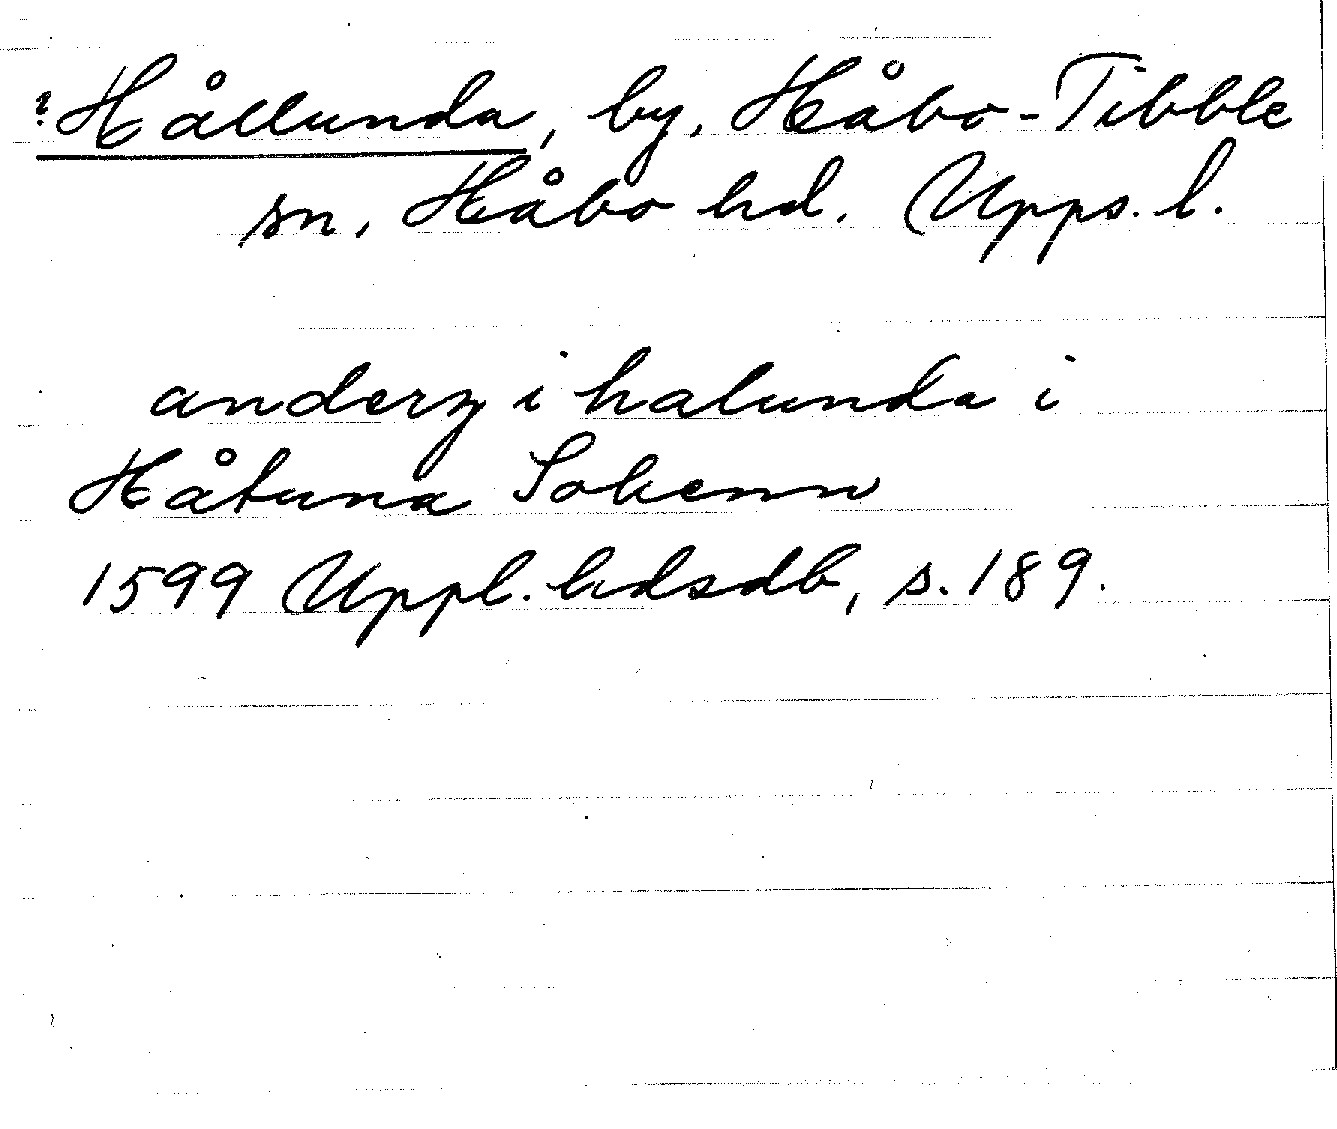 ? Hållunda, by, Håbo-Tibble
sn, Håbo hd. Upps. l.
anderz i halunda i
Håtuna Sokenn
1599 Uppl. hdsdb, s. 189.